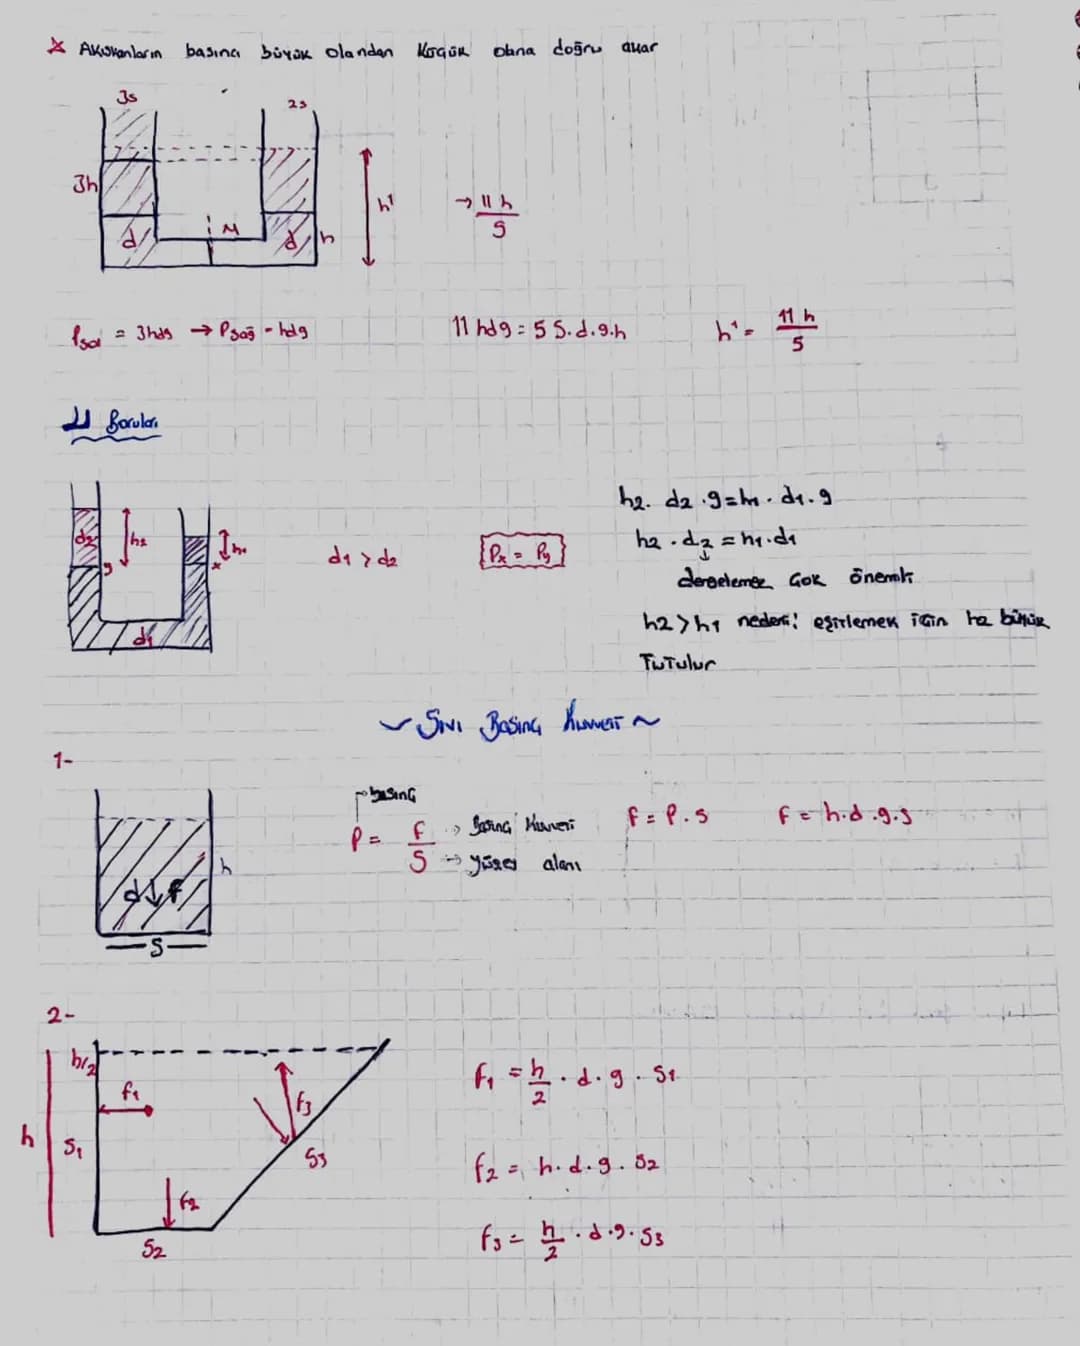 * Akışkanların basıncı büyük olandan küçük olana doğru akar
3s
2s
3h
h¹
→ 11 h / 5
d
M
d
h
Psol = 3hdg → Psağ = hdg
11 hdg = 5 S.d.g.h
h¹ = 11 h / 5
U Boruları
d2
h2
h1
y
x
d1
d1 > d2
Px = Py
h2. d2 .g = h1. d1.g
h2 . d2 = h1.d1
dengelemek çok önemli
h2 > h1 nedeni: eşitlemek için h2 büyük
Tutulur
~ Sıvı Basınç Kuvveti ~
1-
basınç
P = F / S → Basınç Kuvveti
→ yüzey alanı
f = P.s
f = h.d.g.s
h
d ↓ f
S
2-
h/2
f1
h
S1
f3
S3
f2
S2
f1 = h/2 . d.g . S1
f2 = h.d.g. S2
f3 = h/2 . d.g. S3